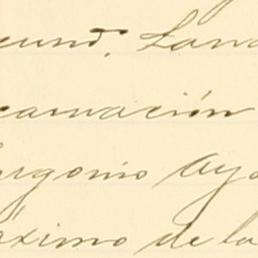 cund.̃ Lan
carnación
urgonio Ay
óximo de la